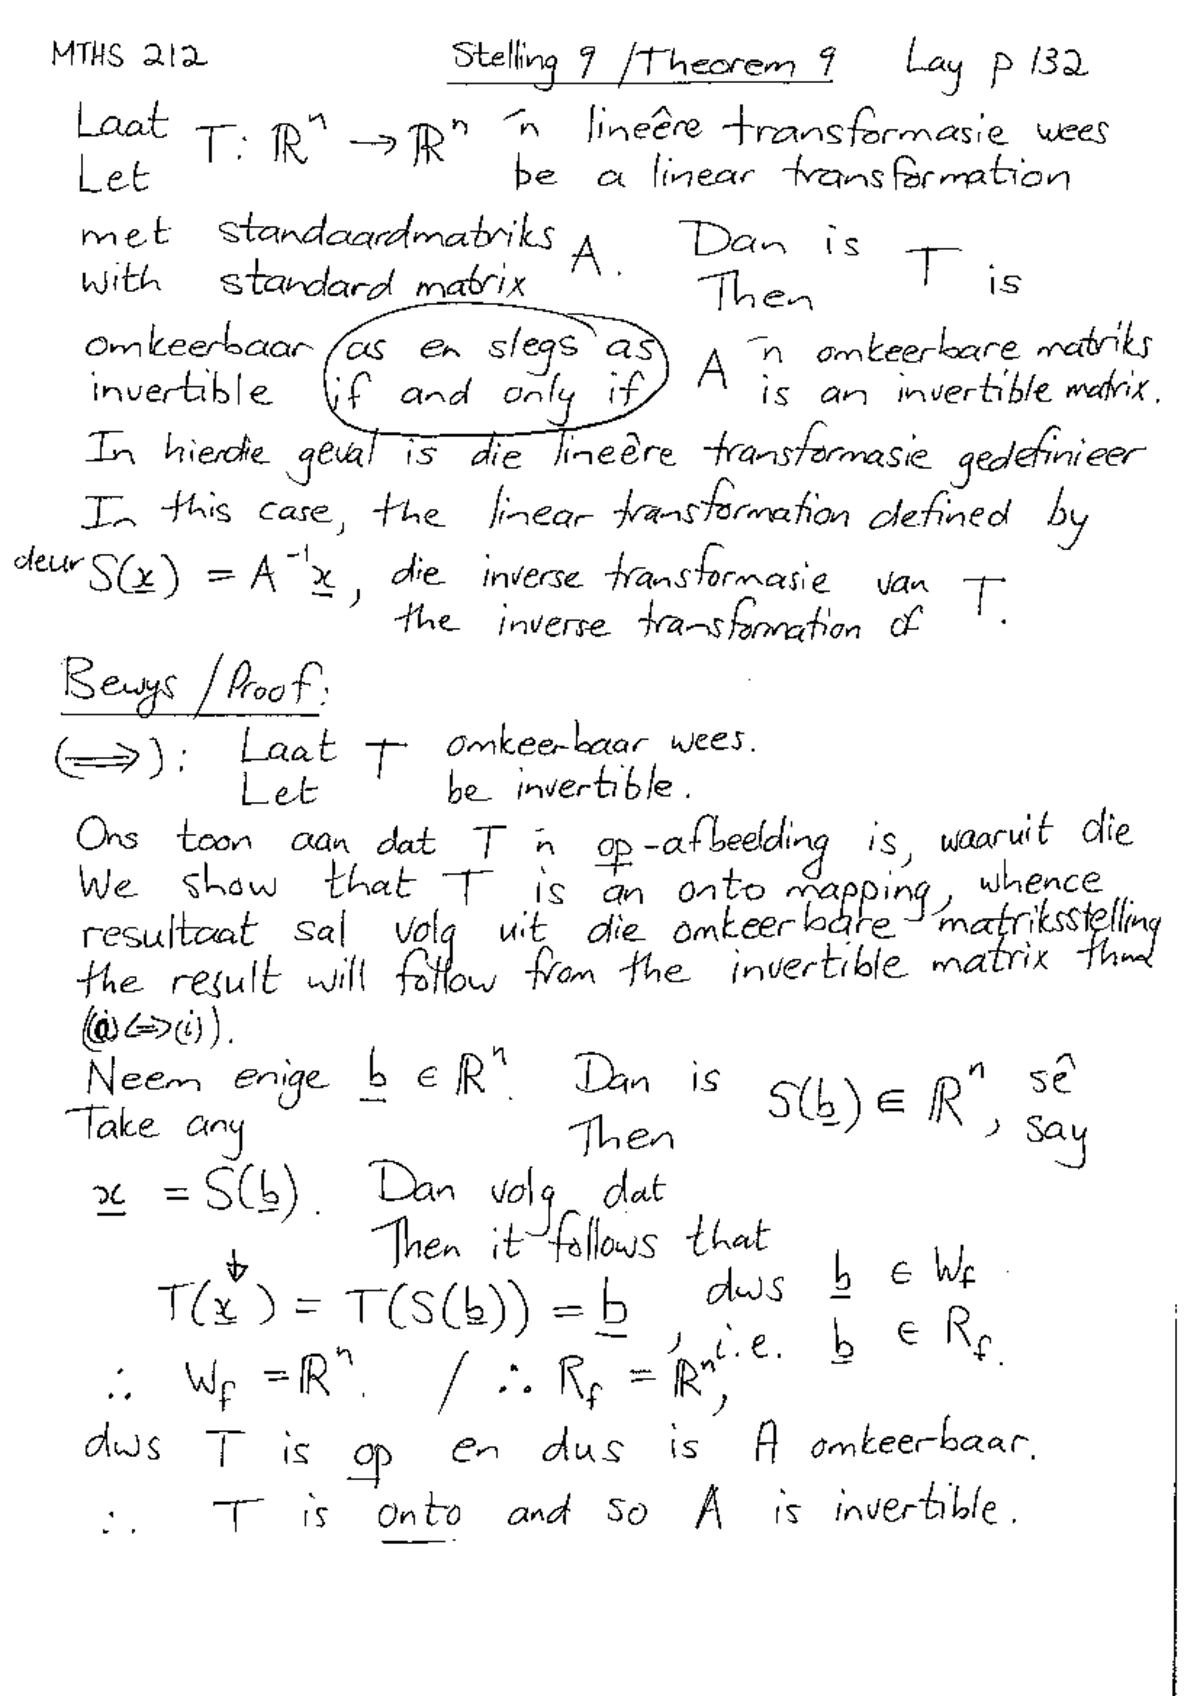 MTHS 212 Stelling 9 / Theorem 9 Lay p 132
Laat T: ℝⁿ → ℝⁿ 'n lineêre transformasie wees
Let be a linear transformation
met standaardmatriks A. Dan is T is
with standard matrix Then
omkeerbaar as en slegs as A 'n omkeerbare matriks
invertible if and only if is an invertible matrix.
In hierdie geval is die lineêre transformasie gedefinieer
In this case, the linear transformation defined by
deur S(x) = A⁻¹x, die inverse transformasie van T.
the inverse transformation of
Bewys / Proof:
(⟹): Laat T omkeerbaar wees.
Let be invertible.
Ons toon aan dat T 'n op-afbeelding is, waaruit die
We show that T is an onto mapping, whence
resultaat sal volg uit die omkeerbare matriksstelling
the result will follow from the invertible matrix thm
(a ⟺ (i)).
Neem enige b ∈ ℝⁿ. Dan is S(b) ∈ ℝⁿ, sê
Take any Then say
x = S(b). Dan volg dat
Then it follows that
T(x) = T(S(b)) = b dws b ∈ W_f
, i.e. b ∈ R_f.
∴ W_f = ℝⁿ. / ∴ R_f = ℝⁿ,
dws T is op en dus is A omkeerbaar.
∴ T is onto and so A is invertible.